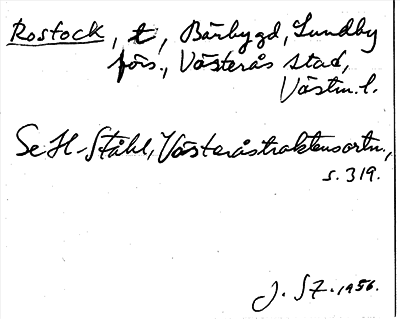 Rostock, t, Bärbygd, Lundby
förs., Västerås stad,
Västm.l.
Se H. Ståhl, Västeråstraktens ortn.,
s. 319.
J. SZ. 1956.